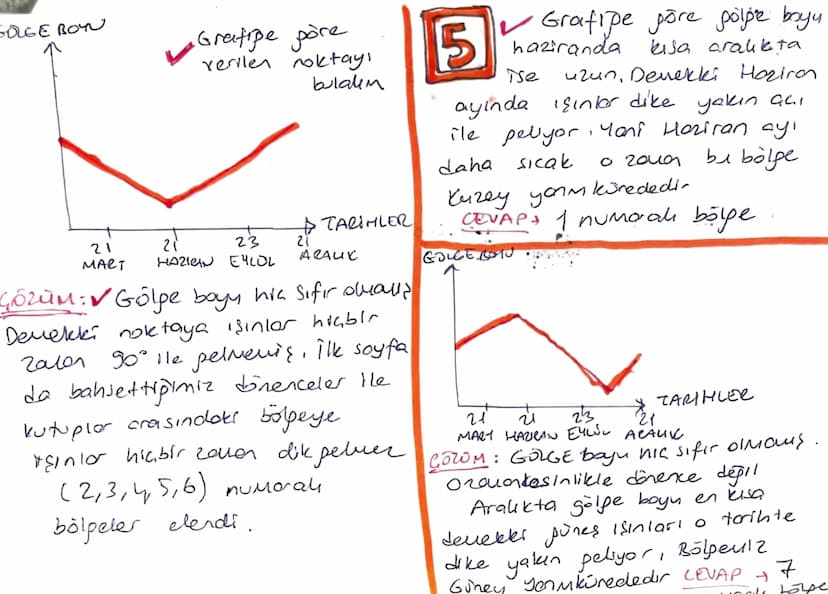 GÖLGE BOYU
✓ Grafiğe göre
verilen noktayı
bulalım
TARİHLER
21 21 23 21
MART HAZİRAN EYLÜL ARALIK
ÇÖZÜM: ✓ Gölge boyu hiç sıfır olmamış
Demekki noktaya ışınlar hiçbir
zaman 90° ile gelmemiş. İlk sayfa
da bahsettiğimiz dönenceler ile
kutuplar arasındaki bölgeye
ışınlar hiçbir zaman dik gelmez
(2,3,4,5,6) numaralı
bölgeler elendi.
5
✓ Grafiğe göre gölge boyu
haziranda kısa aralıkta
ise uzun. Demekki Haziran
ayında ışınlar dike yakın açı
ile geliyor. Yani Haziran ayı
daha sıcak o zaman bu bölge
Kuzey yarımkürededir
CEVAP → 1 numaralı bölge
GÖLGE BOYU
TARİHLER
21 21 23 21
MART HAZİRAN EYLÜL ARALIK
ÇÖZÜM: GÖLGE boyu hiç sıfır olmamış.
O zaman kesinlikle dönence değil
Aralıkta gölge boyu en kısa
demekki güneş ışınları o tarihte
dike yakın geliyor. Bölgemiz
Güney Yarımkürededir CEVAP → 7
bölge